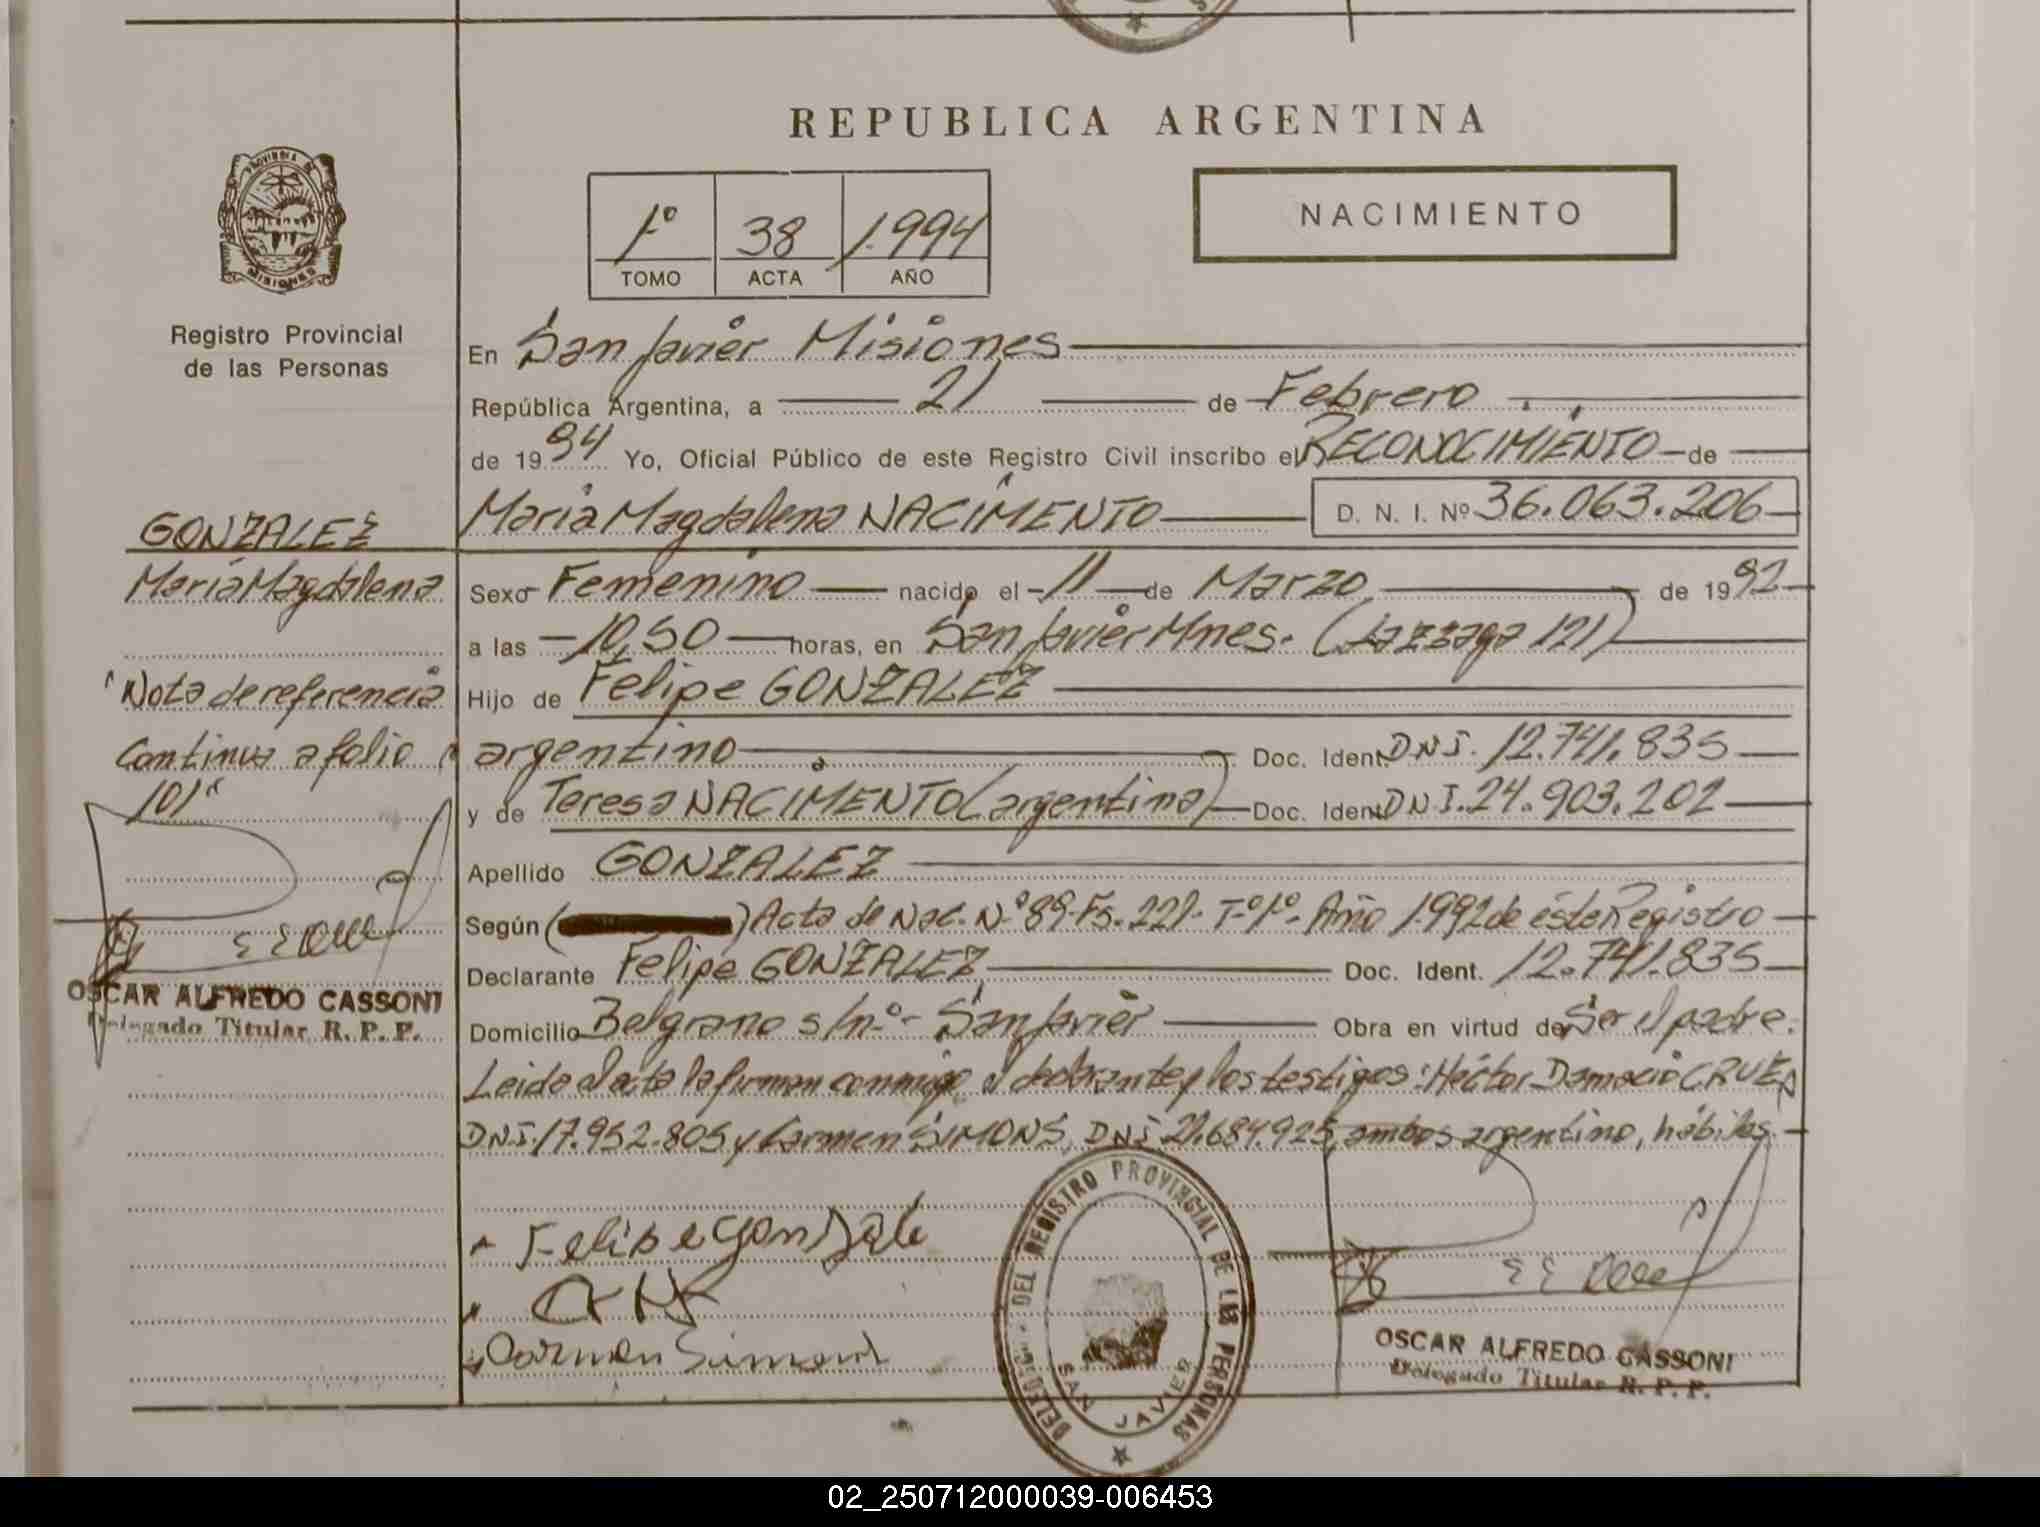 REPUBLICA ARGENTINA
PROVINCIA DE
MISIONES
Registro Provincial
de las Personas
1º 38 1.994
TOMO ACTA AÑO
NACIMIENTO
En San Javier Misiones
República Argentina, a 21 de Febrero
de 1994 Yo, Oficial Público de este Registro Civil inscribo el RECONOCIMIENTO de
Maria Magdalena NACIMENTO D. N. I. Nº 36.063.206
GONZALEZ
Maria Magdalena
"Nota de referencia
Continua a folio
101"
OSCAR ALFREDO CASSONI
Delegado Titular R. P. P.
Sexo Femenino nacido el 11 de Marzo de 1992
a las 10,50 horas, en San Javier Mnes. ( 121)
Hijo de Felipe GONZALEZ
argentino Doc. Ident. DNI. 12.741.835
y de Teresa NACIMENTO (argentina) Doc. Ident. DNI. 24.903.202
Apellido GONZALEZ
Según ( ) Acta de Nac. Nº 89-Fº. 221- Tº1º- Año 1.992 de éste Registro
Declarante Felipe GONZALEZ Doc. Ident. 12.741.835
Domicilio Belgrano s/nº- San Javier Obra en virtud de Ser el padre.
Leida el acta la firman conmigo el declarante y los testigos: Héctor Damacio
DNI. 17.952.805 y Carmen SIMONS, DNI 21.684.925, ambos argentino, hábiles.
Felipe Gonzale
Carmen Simons
DEL REGISTRO PROVINCIAL DE LAS PERSONAS
SAN JAVIER
OSCAR ALFREDO CASSONI
Delegado Titular R. P. P.
02_250712000039-006453